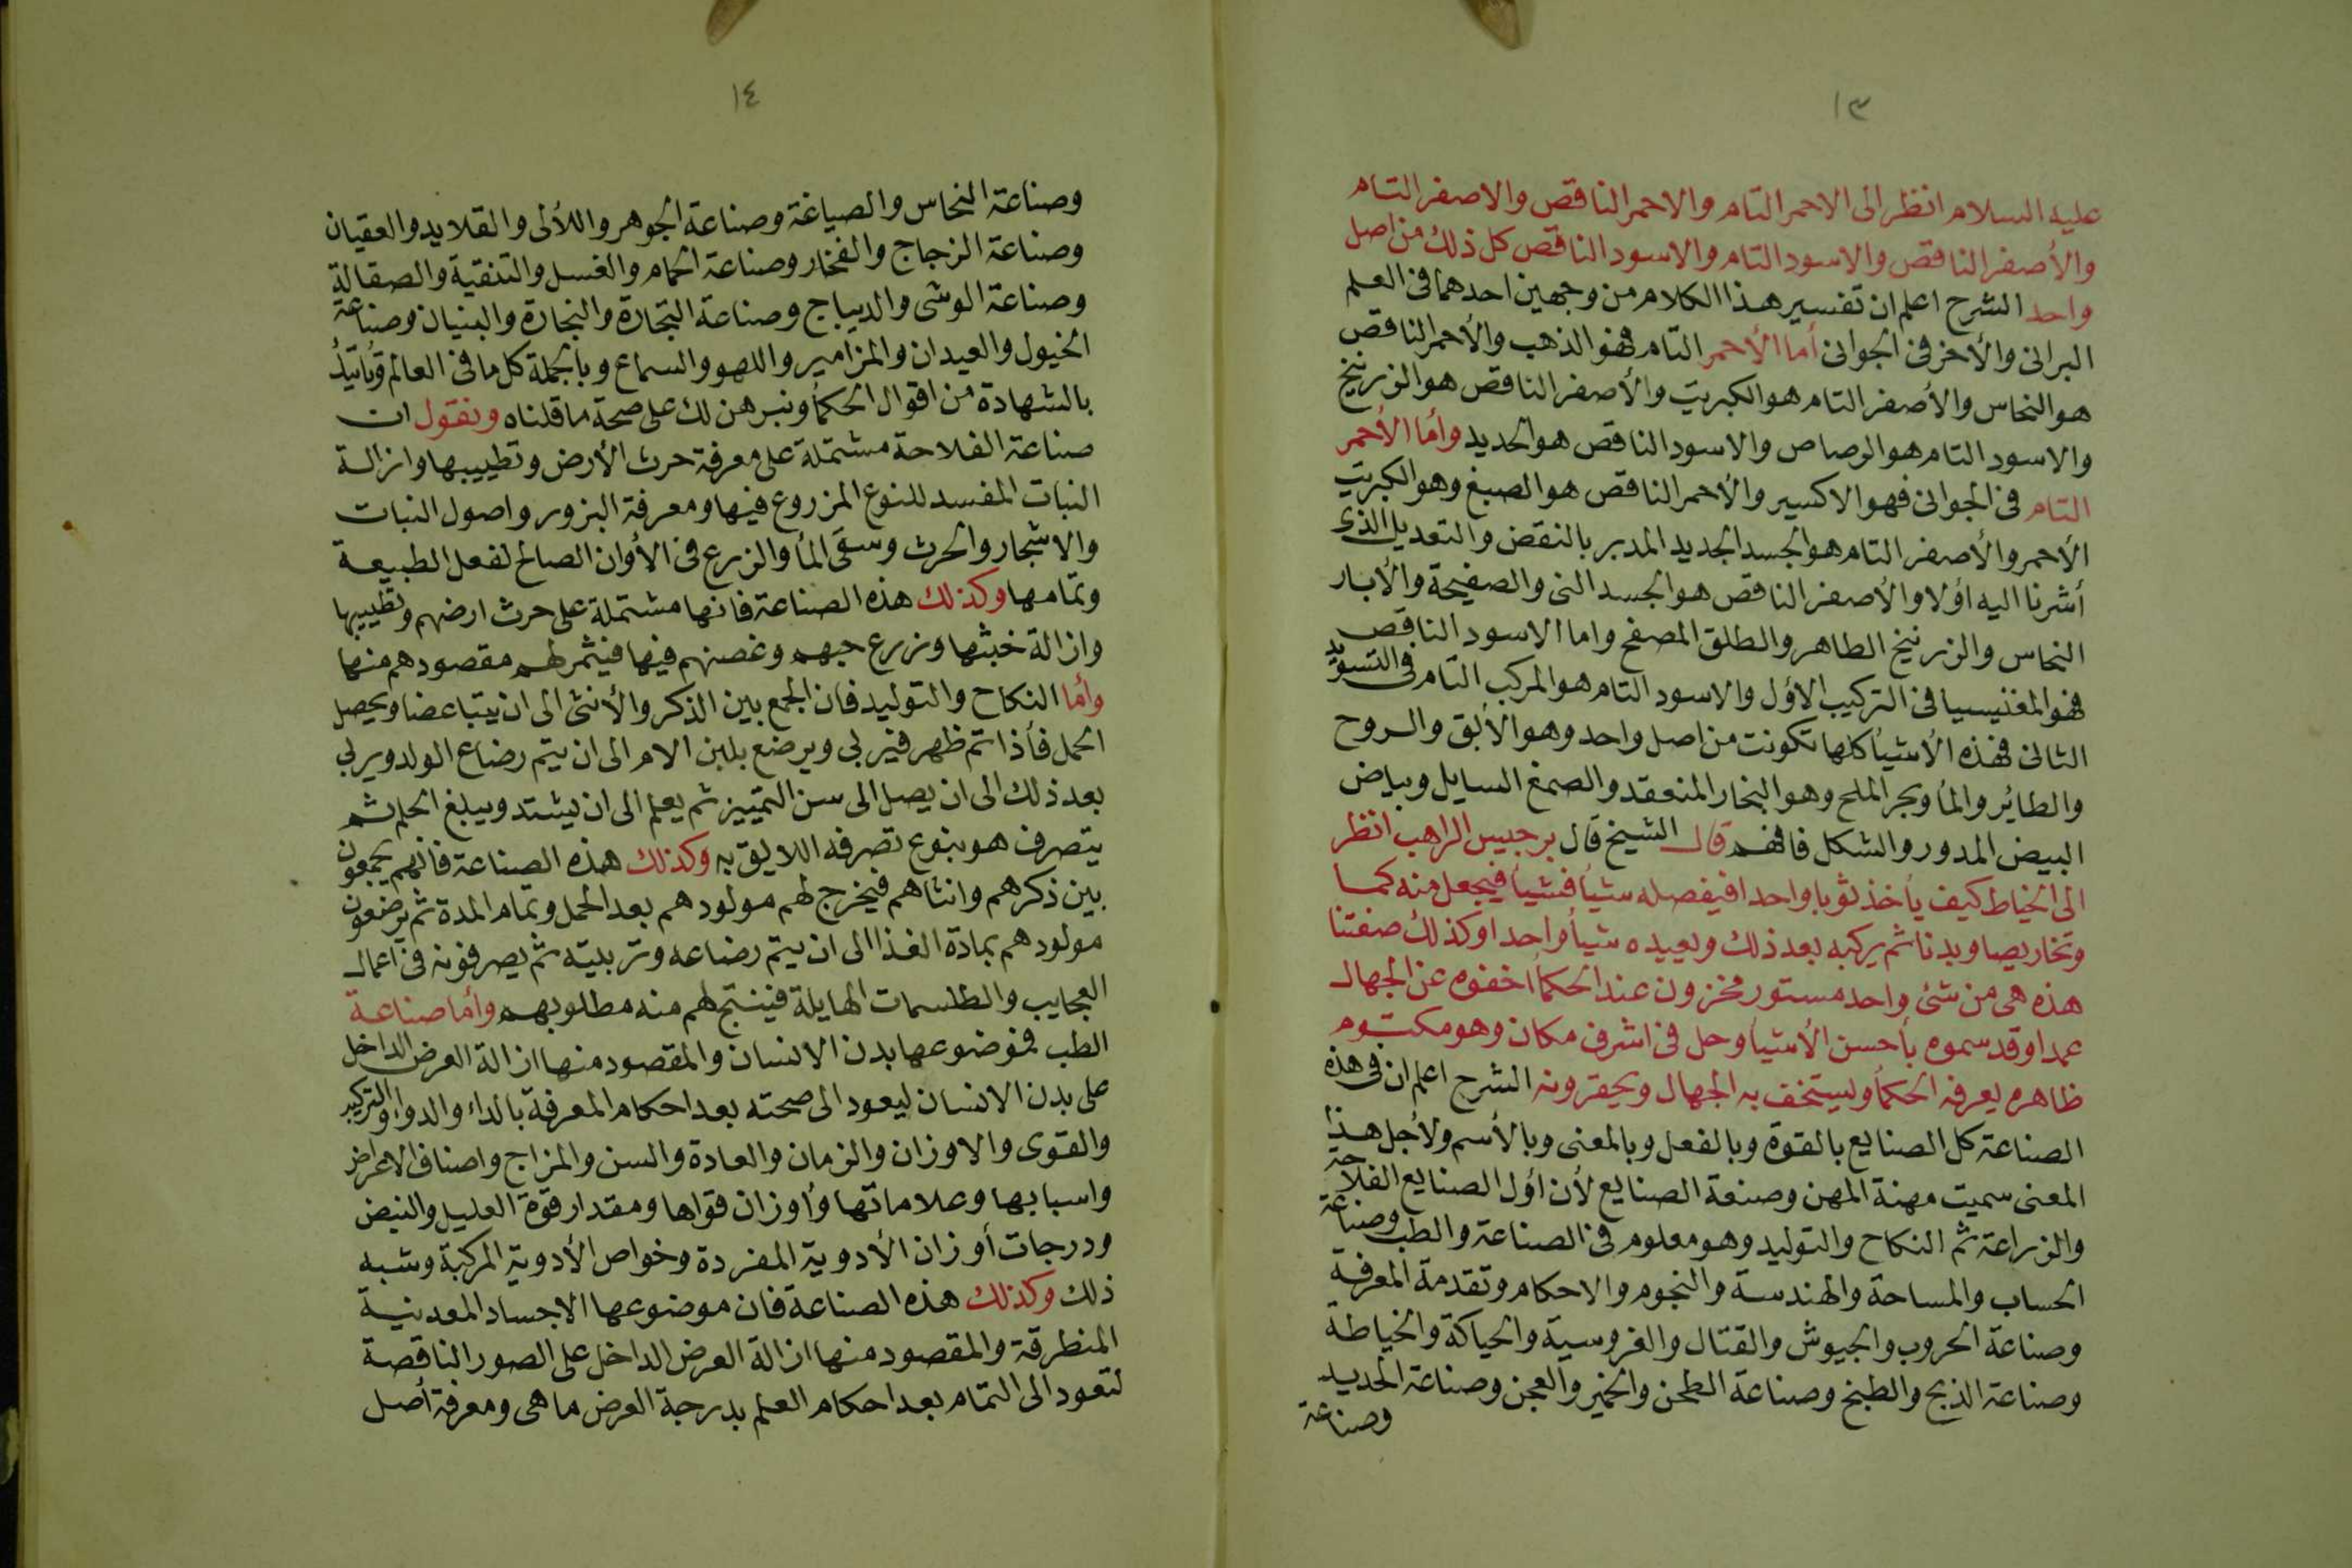 ١٣
عليه السلام انظر الى الاحمر التام والاحمر الناقص والاصفر التام
والأصفر الناقص والاسود التام والاسود الناقص كل ذلك من اصل
واحد الشرح اعلم ان تفسير هذا الكلام من وجهين احدهما فى العلم
البرانى والأخر فى الجوانى أما الأحمر التام فهو الذهب والأحمر الناقص
هو النحاس والأصفر التام هو الكبريت والأصفر الناقص هو الزرنيخ
والاسود التام هو الرصاص والاسود الناقص هو الحديد وأما الأحمر
التام فى الجوانى فهو الاكسير والأحمر الناقص هو الصبغ وهو الكبريت
الأحمر والأصفر التام هو الجسد الجديد المدبر بالنقض والتعديل الذى
أشرنا اليه اولا والأصفر الناقص هو الجسد النى والصفيحة والأبار
النحاس والزرنيخ الطاهر والطلق المصفح واما الاسود الناقص
فهو المغنيسيا فى التركيب الاول والاسود التام هو المركب التام فى التسويد
الثانى فهذه الأشيأ كلها تكونت من اصل واحد وهو الأبق والروح
والطائر والمأ وبحر الملح وهو البخار المنعقد والصمغ السايل وبياض
البيض المدور والشكل فافهم قال الشيخ قال برجيس الراهب انظر
الى الخياط كيف يأخذ ثوبا واحدا فيفصله شيأ فشيأ فيجعل منه كما
وتخاريصا وبدنا ثم يركبه بعد ذلك ويعيده شيأ واحدا وكذلك صفتنا
هذه هى من شئ واحد مستور مخزون عند الحكمأ اخفوه عن الجهال
عمدا وقد سموه بأحسن الأشيأ وحل فى اشرف مكان وهو مكتوم
ظاهره يعرفه الحكمأ ويستخف به الجهال ويحقرونه الشرح اعلم ان فى هذه
الصناعة كل الصنايع بالقوة وبالفعل وبالمعنى وبالأسم ولأجل هذا
المعنى سميت مهنة المهن وصنعة الصنايع لأن اول الصنايع الفلاحة
والزراعة ثم النكاح والتوليد وهو معلوم فى الصناعة والطب وصناعة
الحساب والمساحة والهندسة والنجوم والاحكام وتقدمة المعرفة
وصناعة الحروب والجيوش والقتال والفروسية والحياكة والخياطة
وصناعة الذبح والطبخ وصناعة الطحن والخبز والعجن وصناعة الحديد
وصناعة
١٤
وصناعة النحاس والصياغة وصناعة الجوهر واللألى والقلايد والعقيان
وصناعة الزجاج والفخار وصناعة الحمام والغسل والتنقية والصقالة
وصناعة الوشى والديباج وصناعة التجارة والنجارة والبنيان وصناعة
الخيول والعيدان والمزامير واللهو والسماع وبالجملة كل ما فى العالم
بالشهادة من اقوال الحكمأ ونبرهن لك على صحة ما قلناه ونقول ان
صناعة الفلاحة مشتملة على معرفة حرث الأرض وتطييبها وازالة
النبات المفسد للنوع المزروع فيها ومعرفة البزور واصول النبات
والاشجار والحرث وسقى المأ والزرع فى الأوان الصالح لفعل الطبيعة
وتمامها وكذلك هذه الصناعة فانها مشتملة على حرث ارضهم وتطييبها
وازالة خبثها وزرع حبهم وغصنهم فيها فيثمر لهم مقصودهم منها
وأما النكاح والتوليد فان الجمع بين الذكر والأنثى الى ان يتباعضا ويحصل
الحمل فأذا تم ظهر فيربى ويرضع بلبن الام الى ان يتم رضاع الولد ويربى
بعد ذلك الى ان يصل الى سن التمييز ثم يعلم الى ان يشتد ويبلغ الحلم ثم
يتصرف هو بنوع تصرفه اللايق به وكذلك هذه الصناعة فانهم يجمعون
بين ذكرهم وانثاهم فيخرج لهم مولودهم بعد الحمل وتمام المدة ثم يرضعون
مولودهم بمادة الغذا الى ان يتم رضاعه وتربيته ثم يصرفونه فى اعمال
العجايب والطلسمات الهايلة فينتج لهم منه مطلوبهم وأما صناعة
الطب فموضوعها بدن الانسان والمقصود منها ازالة العرض الداخل
على بدن الانسان ليعود الى صحته بعد احكام المعرفة بالداء والدواء والتركيب
والقوى والاوزان والزمان والعادة والسن والمزاج واصناف الاعراض
واسبابها وعلاماتها وأوزان قواها ومقدار قوة العليل والنبض
ودرجات أوزان الأدوية المفردة وخواص الأدوية المركبة وشبه
ذلك وكذلك هذه الصناعة فان موضوعها الاجساد المعدنية
المنطرقة والمقصود منها ازالة العرض الداخل على الصور الناقصة
لتعود الى التمام بعد احكام العلم بدرجة العرض ما هى ومعرفة أصل